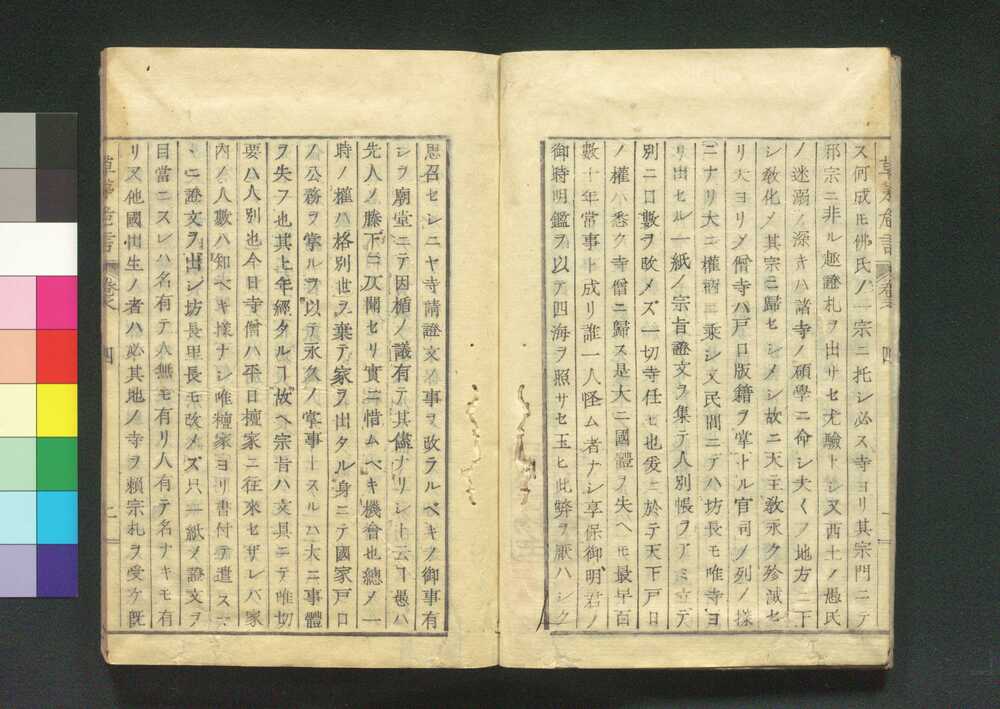 ス何成モ佛氏ノ一宗ニ托シ必ス寺ヨリ其宗門ニテ
邪宗ニ非ル趣證札ヲ出サセ尤驗トシ又西土ノ愚氏
ノ迷溺ノ深キハ諸寺ノ碩學ニ命シ夫々ノ地方ニ下
シ敎化メ其宗ニ歸セシメシ故ニ天主敎永ク殄滅セ
リ夫ヨリメ僧寺ハ戸口版籍ヲ掌トル官司ノ列ノ樣
ニナリ大ニ權柄ニ乘シ又民間ニテハ坊長モ唯寺ヨ
リ出セル一紙ノ宗旨證文ヲ集テ人別帳ヲアミ立テ
別ニ口數ヲ改メズ一切寺任セ也爰ニ於テ天下戸口
ノ權ハ悉ク寺僧ニ歸ス是大ニ國體ヲ失ヘモ最早百
數十年常事ト成リ誰一人怪ム者ナシ享保御明君ノ
御時明鑑ヲ以テ四海ヲ照サセ玉ヒ此弊ヲ厭ハシク
思召セシニヤ寺請證文ノ事ヲ改ラルベキノ御事有
シヲ廟堂ニテ因楯ノ議有テ其儘ナリシト云フ愚ハ
先人ノ膝下ニ仄聞セリ實ニ惜ムベキ機會也總メ一
時ノ權ハ格別世ヲ棄テ家ヲ出タル身ニテ國家戸口
ノ公務ヲ掌ルヲ以テ永久ノ掌事トスルハ大ニ事體
ヲ失フ也其上年經タルヿ故ヘ宗旨ハ文具ニテ唯切
要ハ人別也今日寺僧ハ平日檀家ニ往來セザレバ家
内ノ人數ハ知ベキ樣ナシ唯檀家ヨリ書付テ遣ス
ニ證文ヲ出シ坊長里長モ改メズ只一紙ノ證文ヲ
目當ニスレハ名有テ人無モ有リ人有テ名ナキモ有
リ又他國出生ノ者ハ必其地ノ寺ヲ賴宗札ヲ受ケ旣
草茅危言
卷之
四
草茅危言
卷之
四